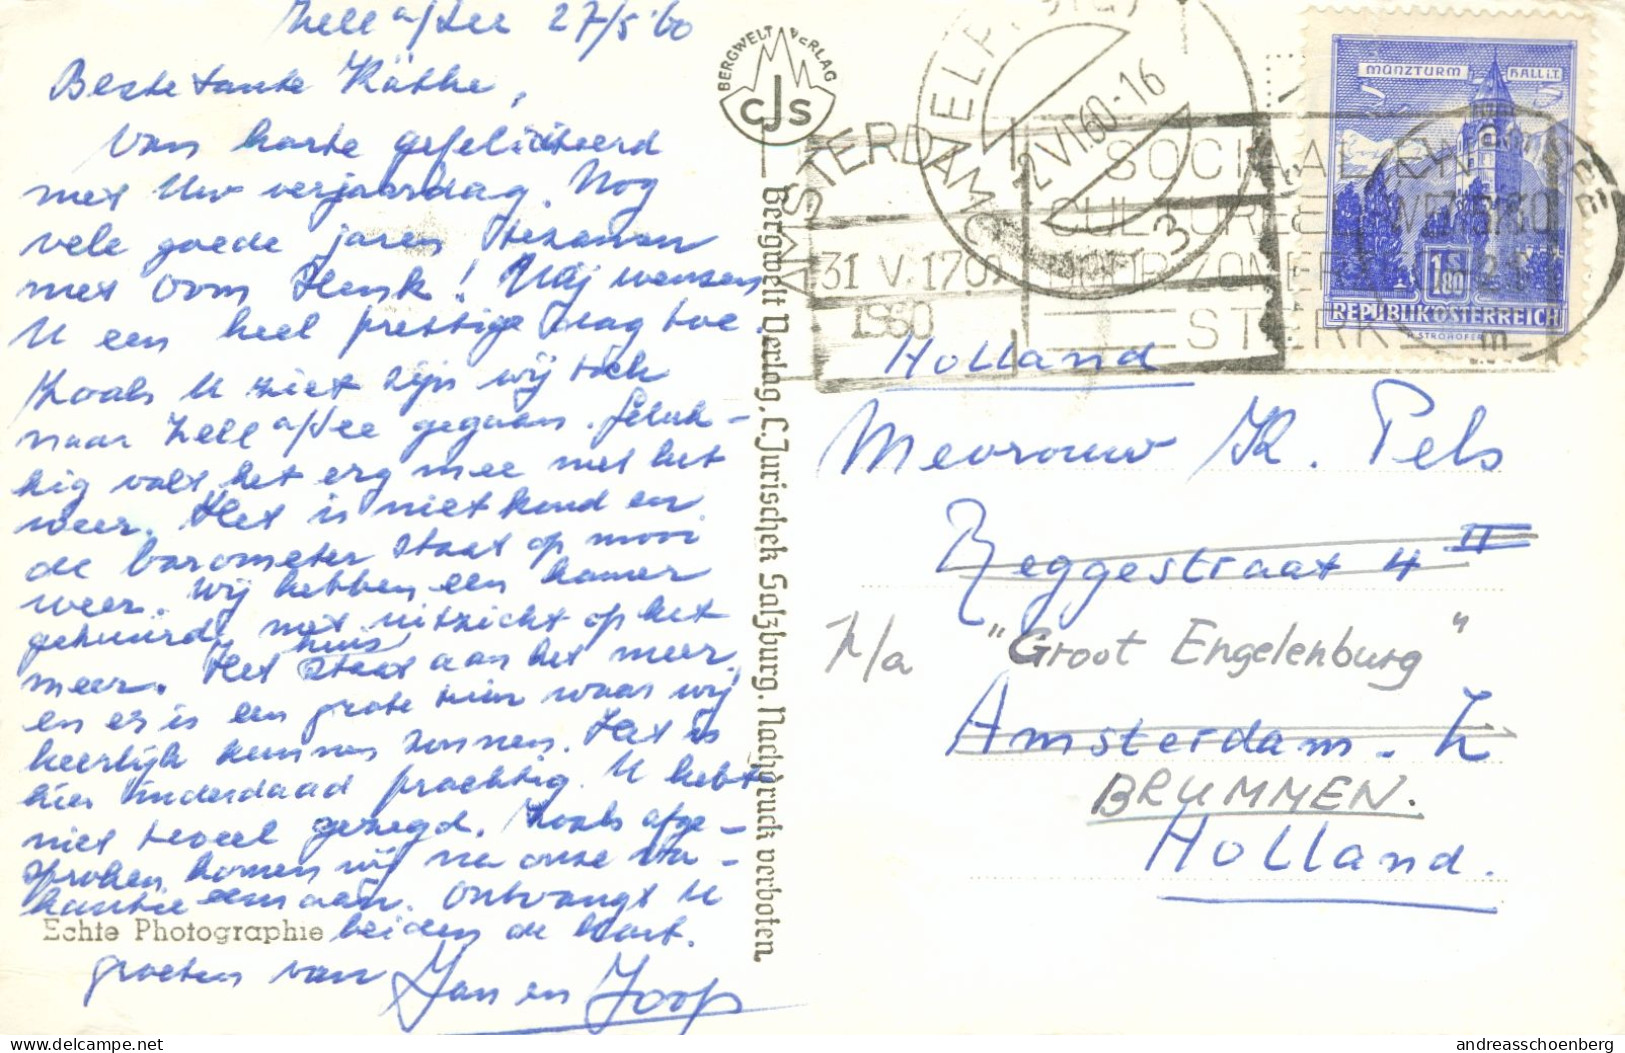 Zell a/See 27/5 '60
Beste tante Käthe,
Van harte gefeliciteerd
met Uw verjaardag. Nog
vele goede jaren tezamen
met Oom Henk! Wij wensen
U een heel prettige dag toe.
Zoals U ziet zijn wij toch
naar Zell a/See gegaan. Geluk-
kig valt het erg mee met het
weer. Het is niet koud en
de barometer staat op mooi
weer. Wij hebben een kamer
gehuurd, met uitzicht op het
meer. Het huis staat aan het meer,
en er is een grote tuin waar wij
heerlijk kunnen zonnen. Het is
hier inderdaad prachtig. U hebt
niet teveel gezegd. Zoals afge-
sproken komen wij na onze va-
kantie eens aan. Ontvangt U
beiden de hart.
groeten van Jan en Joop
Echte Photographie
BERGWELT VERLAG
CJS
Bergwelt Verlag, C. Jurischek Salzburg. Nachdruck verboten
AMSTERDAM
31 V. 17
1960
2 VI.60-16
3
SOCIAAL EN
CULTUREEL
STERK
MÜNZTURM HALL i.T.
1S80
REPUBLIK ÖSTERREICH
Holland
Mevrouw K. Pels
Reggestraat 4 II
h/a "Groot Engelenburg"
Amsterdam. Z
BRUMMEN.
Holland.
delcampe.net
andreasschoenberg